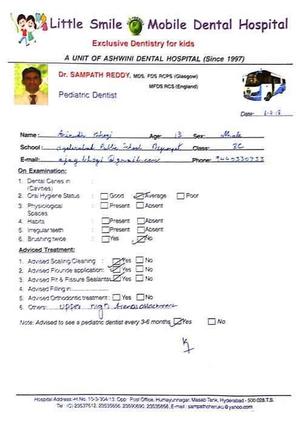 Little Smile Mobile Dental Hospital
Exclusive Dentistry for kids
A UNIT OF ASHWINI DENTAL HOSPITAL (Since 1997)
Dr. SAMPATH REDDY, MDS, FDS RCPS (Glasgow)
MFDS RCS (England)
Pediatric Dentist
Date:
Name: Age: 13 Sex: Male
School: Public School Class: 8C
E-mail: Phone:
On Examination:
1. Dental Caries in :
(Cavities)
2. Oral Hygiene Status : Good Average Poor
3. Physiological : Present Absent
Spaces
4. Habits : Present Absent
5. Irregular teeth : Present Absent
6. Brushing twice : Yes No
Adviced Treatment:
1. Advised Scaling Cleaning : Yes No
2. Advised Flouride application: Yes No
3. Advised Pit & Fissure Sealants: Yes No
4. Advised Filling in
5. Advised Orthodontic treatment : Yes No
6. Others: upper right
Note: Advised to see a pediatric dentist every 3-6 months Yes No
Hospital Address: Opp. Post Office, Humayunnagar, Masab Tank, Hyderabad - 500 028.T.S.